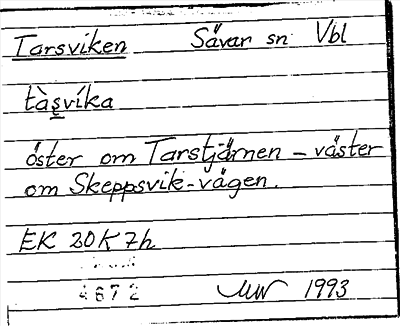 Tarsviken Sävar sn Vbl
tàs̬víka
öster om Tarstjärnen – väster
om Skeppsvik-vägen.
EK 20K7h
4672 1993